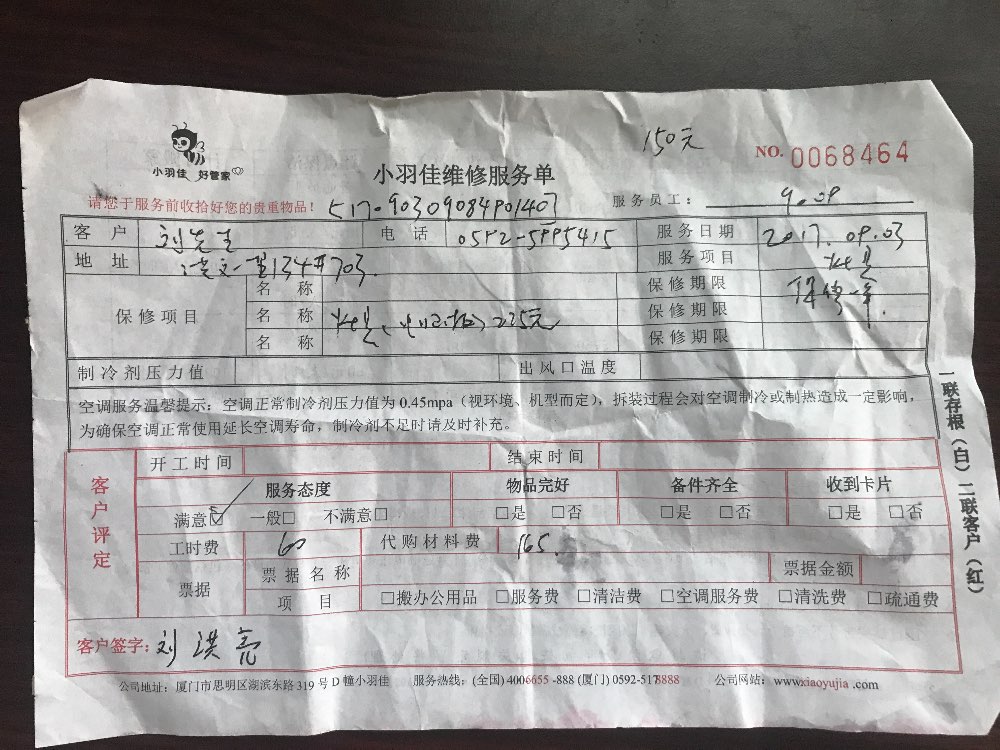 150元
NO. 0068464
小羽佳 好管家
小羽佳维修服务单
请您于服务前收拾好您的贵重物品！
服务员工：
客户 刘先生 电话 0592-5995415 服务日期 2017.09.03
地址 洪文一里134#703. 服务项目
保修项目 名称 保修期限 保修一年.
名称 225元 保修期限
名称 保修期限
制冷剂压力值 出风口温度
空调服务温馨提示：空调正常制冷剂压力值为 0.45mpa（视环境、机型而定），拆装过程会对空调制冷或制热造成一定影响，
为确保空调正常使用延长空调寿命，制冷剂不足时请及时补充。
客户评定
开工时间 结束时间
服务态度 物品完好 备件齐全 收到卡片
满意☑ 一般□ 不满意□ □是 □否 □是 □否 □是 □否
工时费 60 代购材料费 165.
票据 票据名称 票据金额
项目 □搬办公用品 □服务费 □清洁费 □空调服务费 □清洗费 □疏通费
客户签字：刘洪亮
公司地址：厦门市思明区湖滨东路 319 号 D 幢小羽佳 服务热线：(全国) 4006655 -888 (厦门) 0592-5178888 公司网站：www.xiaoyujia .com
一联存根（白）二联客户（红）